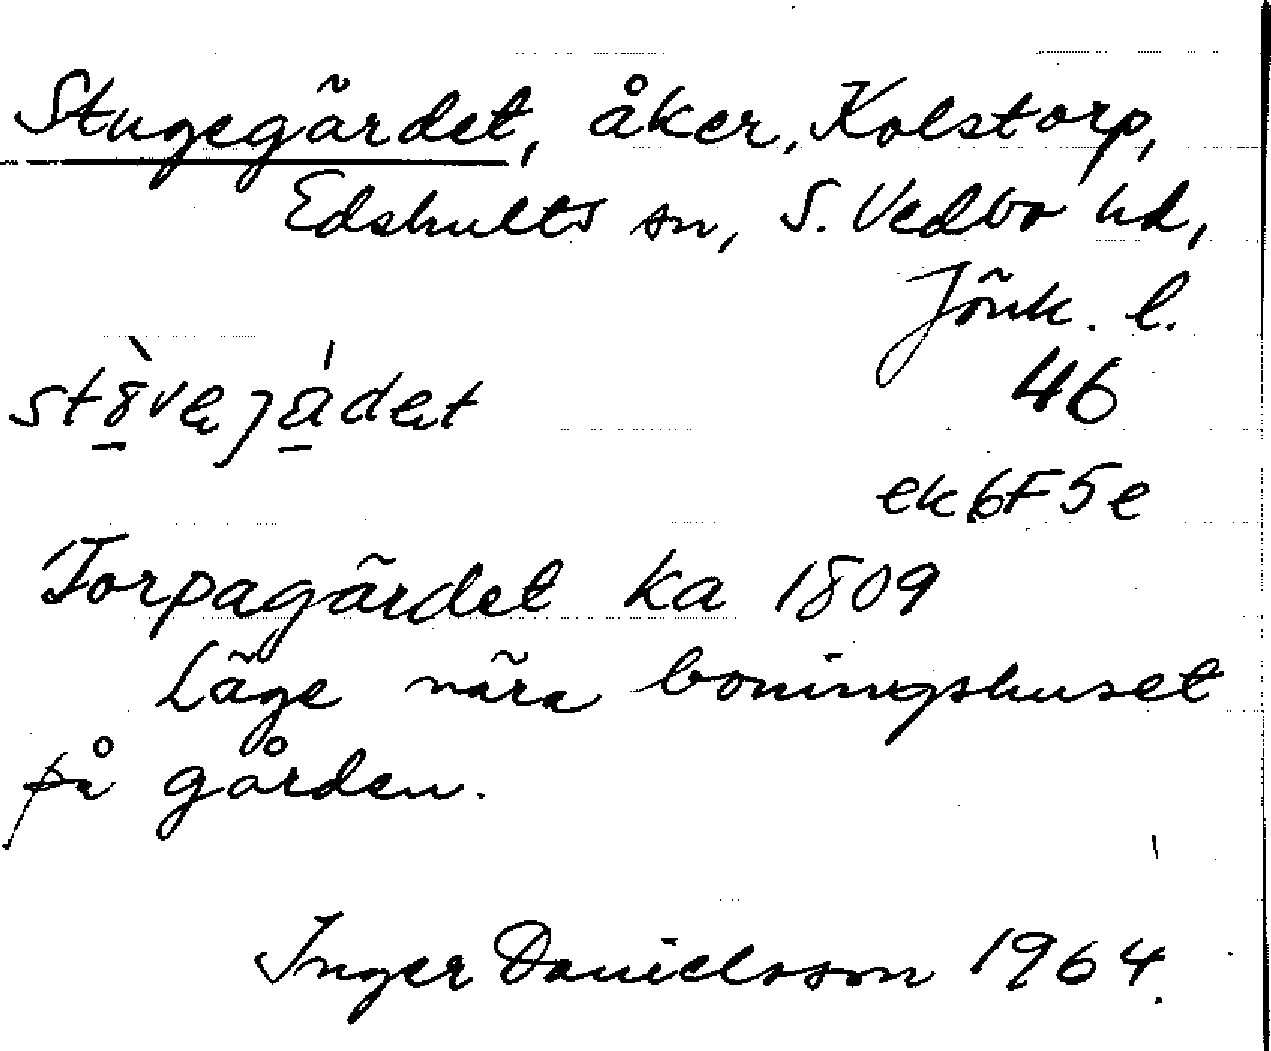 Stugegärdet, åker, Kolstorp,
Edshults sn, S. Vedbo hd,
Jönk. l.
46
ek 6F5e
Torpagärdet ka 1809
Läge nära boningshuset
på gården.
Inger Danielsson 1964.